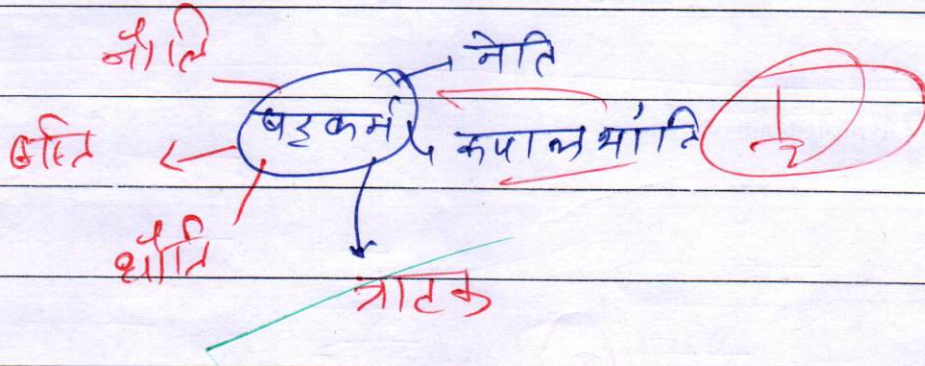 नौलि नेति
बस्ति षट्कर्म कपालभांति 1/2
धौति
त्राटक